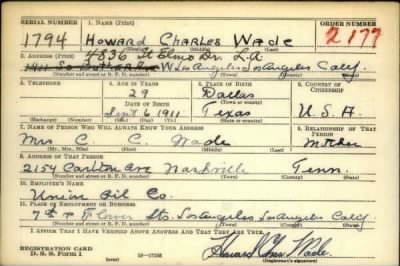 SERIAL NUMBER 1. NAME (Print) ORDER NUMBER
1794 Howard Charles Wade 2177
2. ADDRESS (Print)
4836 St Elmo Dr. L.A.
1411 So W. Los Angeles Los Angeles Calif.
(Number and street or R. F. D. number) (Town) (County) (State)
3. TELEPHONE 4. AGE IN YEARS 5. PLACE OF BIRTH 6. COUNTRY OF CITIZENSHIP
29 Dallas
(Town or county)
DATE OF BIRTH
Sept 6 1911 Texas U.S.A.
(Exchange) (Number) (Mo.) (Day) (Yr.) (State or country)
7. NAME OF PERSON WHO WILL ALWAYS KNOW YOUR ADDRESS 8. RELATIONSHIP OF THAT PERSON
Mrs C. C. Wade Mother
(Mr., Mrs., Miss) (First) (Middle) (Last)
9. ADDRESS OF THAT PERSON
2154 Carlton Ave Nashville Tenn.
(Number and street or R. F. D. number) (Town) (County) (State)
10. EMPLOYER'S NAME
Union Oil Co.
11. PLACE OF EMPLOYMENT OR BUSINESS
7th & Flower Sts. Los Angeles Los Angeles Calif
(Number and street or R. F. D. number) (Town) (County) (State)
I AFFIRM THAT I HAVE VERIFIED ABOVE ANSWERS AND THAT THEY ARE TRUE.
REGISTRATION CARD
D. S. S. Form 1 (over) 16—17105 Howard Chas. Wade
(Registrant's signature)